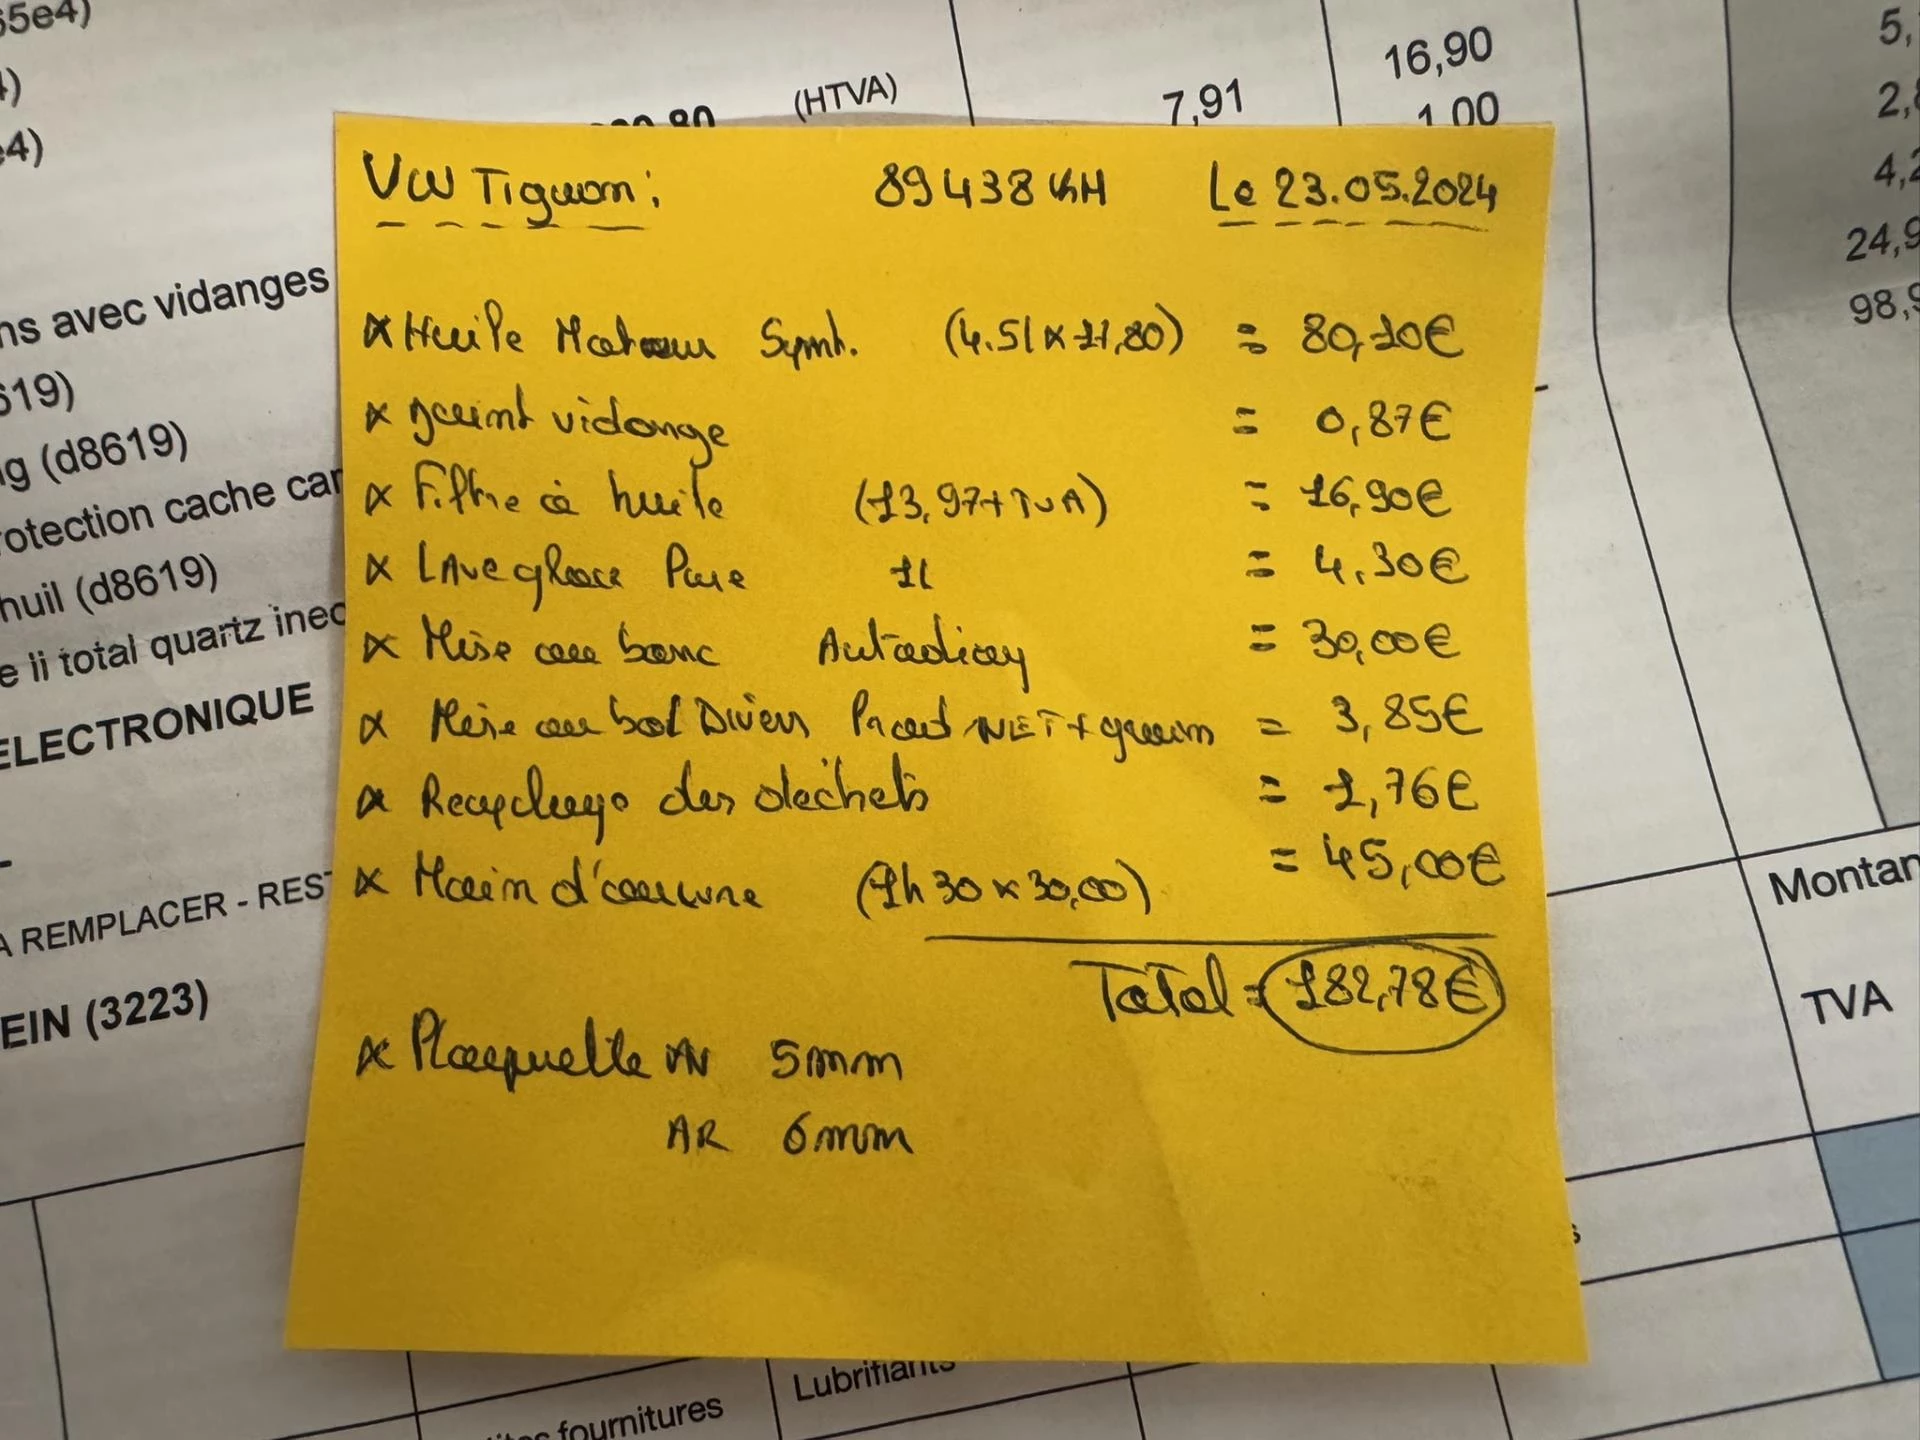 65e4)
4)
e4)
(HTVA)
7,91
16,90
1,00
5,
2,8
4,2
24,9
98,9
VW Tiguan : 89438 KM Le 23.05.2024
ns avec vidanges
619)
ng (d8619)
rotection cache car
huil (d8619)
e li total quartz inec
ELECTRONIQUE
A REMPLACER - REST
EIN (3223)
* Huile Moteur Synth. (4.5l x 17,80) = 80,10€
* joint vidange = 0,87€
* Filtre à huile (13,97+TVA) = 16,90€
* Lave glace Pure 1L = 4,30€
* Mise au banc Autodiag = 30,00€
* Mise au bol Divers Prod NET+ = 3,85€
* Recyclage des déchets = 1,76€
* Main d'oeuvre (1h30 x 30,00) = 45,00€
Total = 182,78€
* Plaquette AV 5mm
AR 6mm
Montan
TVA
Lubrifiants
fournitures